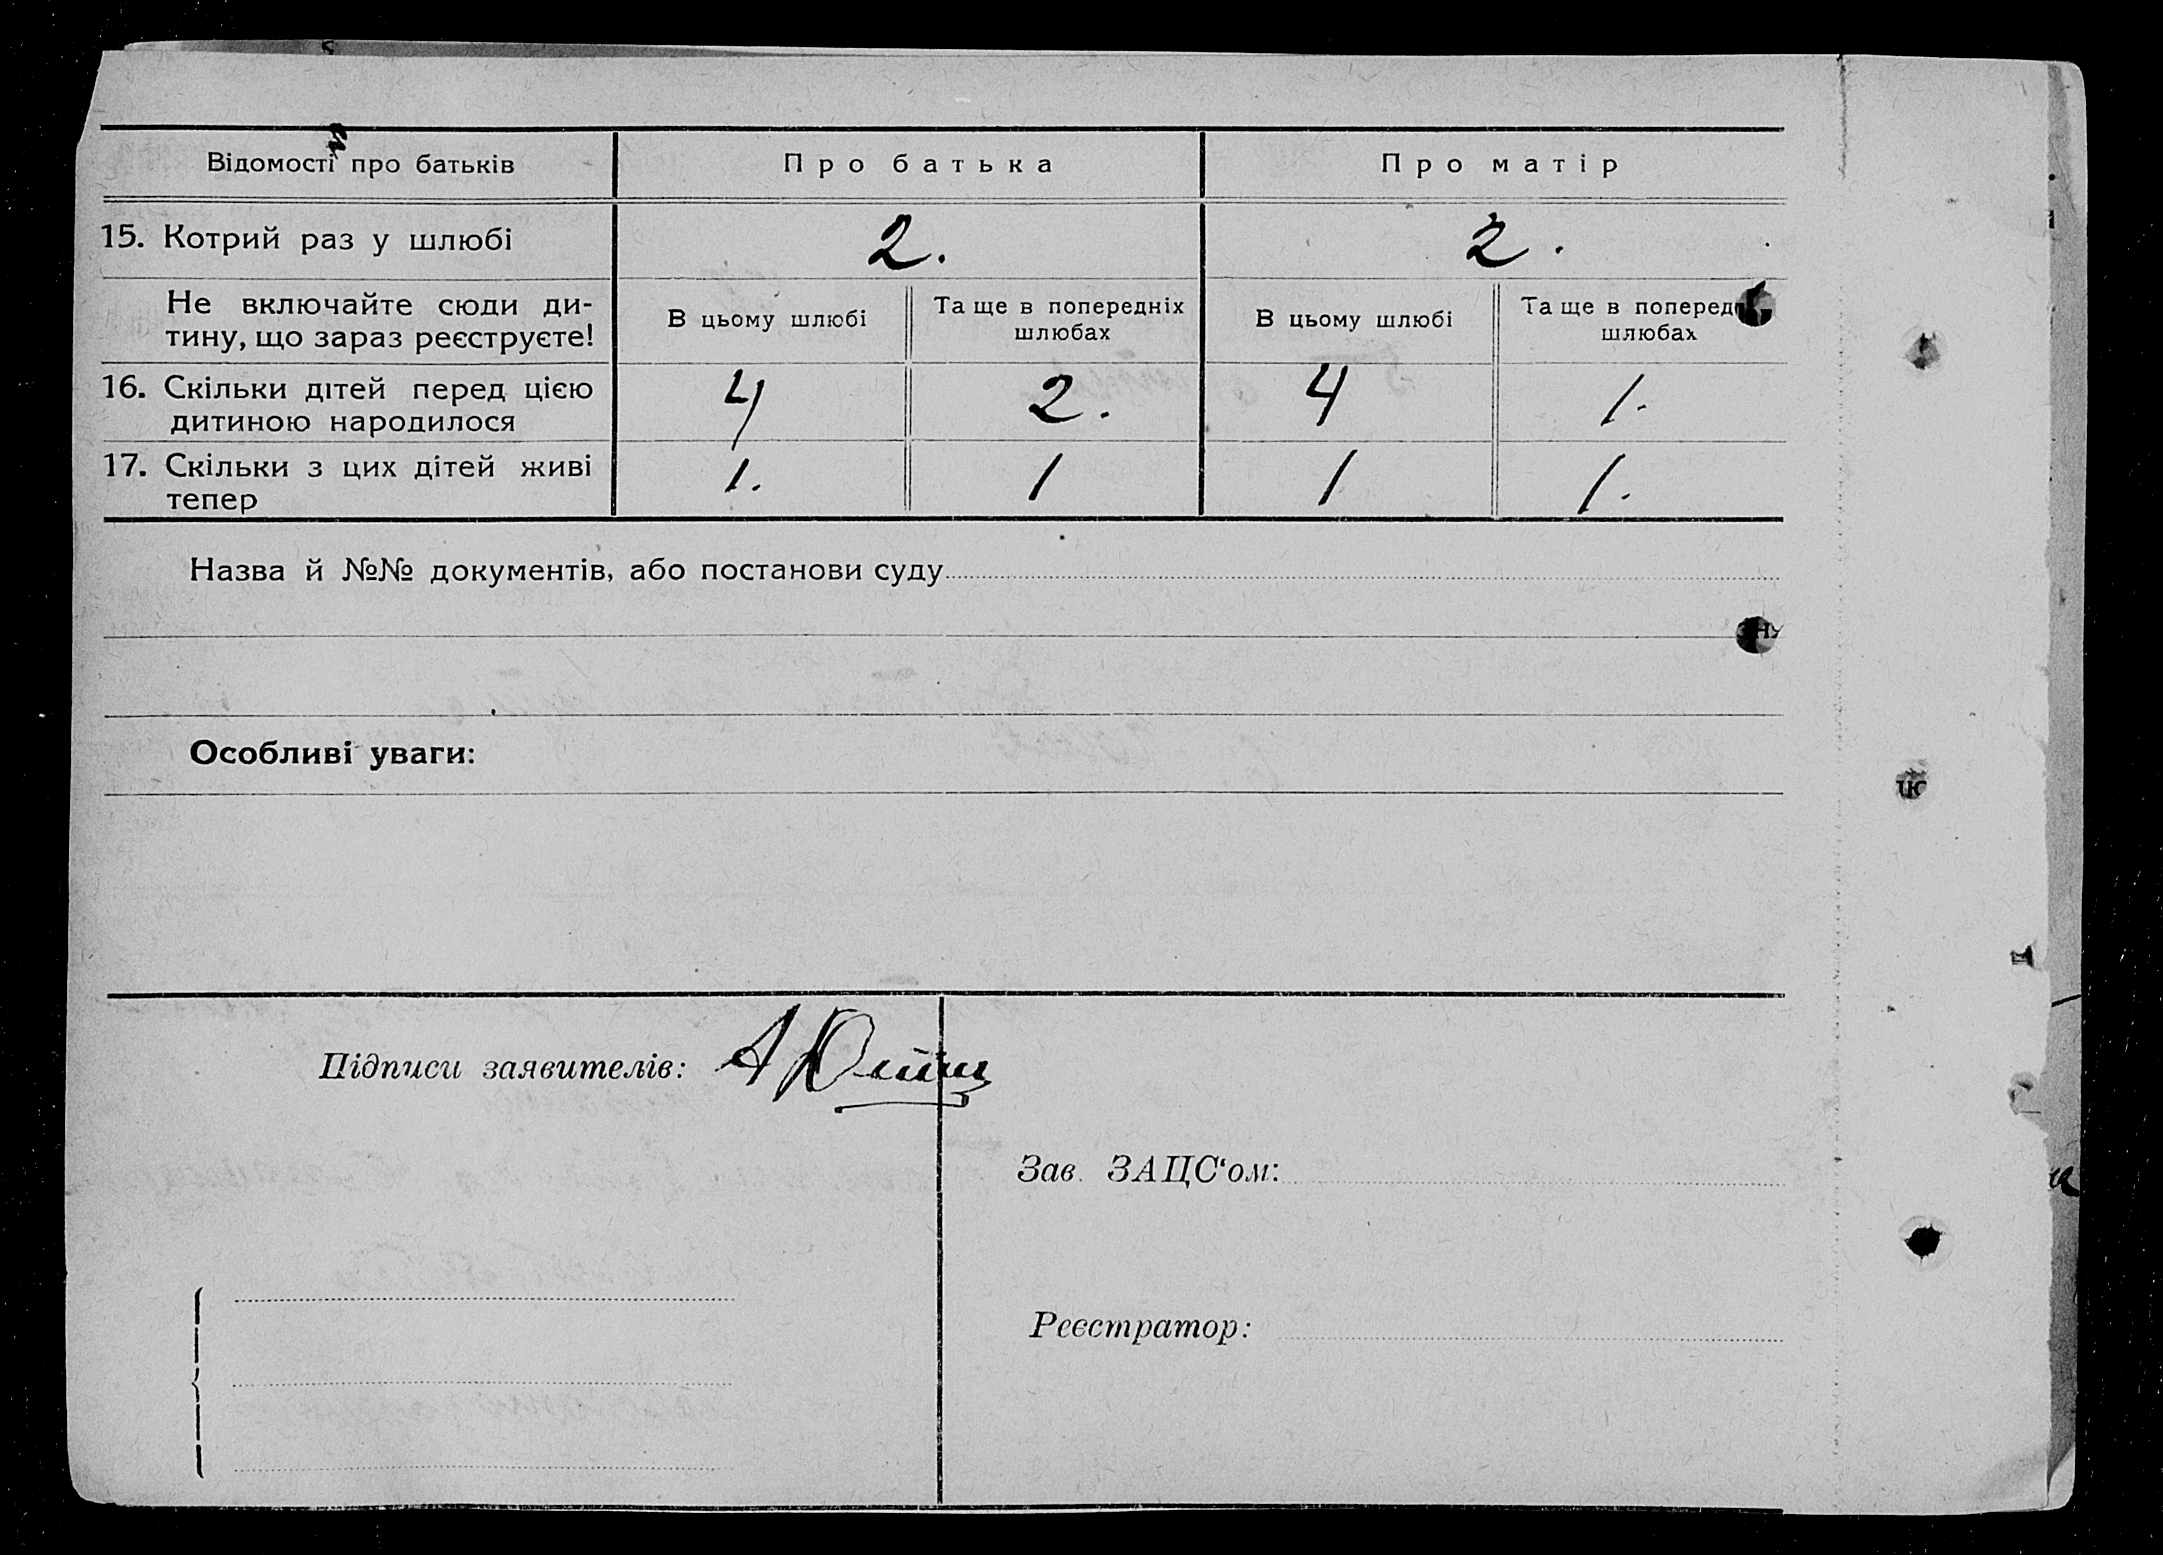 Відомості про батьків Про батька Про матір
15. Котрий раз у шлюбі 2. 2.
Не включайте сюди ди-
тину, що зараз реєструєте!
В цьому шлюбі
Та ще в попередніх
шлюбах
В цьому шлюбі
Та ще в поперед
шлюбах
16. Скільки дітей перед цією
дитиною народилося
4 2. 4 1.
17. Скільки з цих дітей живі
тепер
1. 1 1 1.
Назва й №№ документів, або постанови суду
Особливі уваги:
Підписи заявителів:
Зав. ЗАЦС‘ом:
Реєстратор: